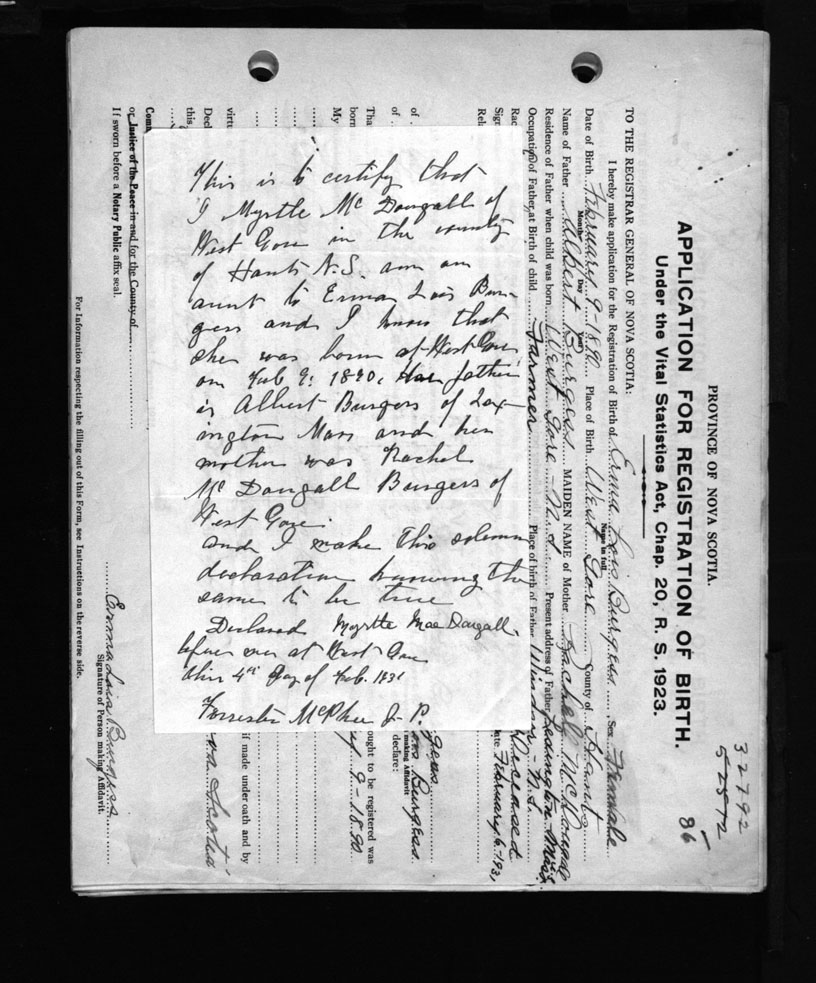 32792
52572
86
PROVINCE OF NOVA SCOTIA.
APPLICATION FOR REGISTRATION OF BIRTH.
Under the Vital Statistics Act, Chap. 20, R. S. 1923.
TO THE REGISTRAR GENERAL OF NOVA SCOTIA:
I hereby make application for the Registration of Birth of Erma Lois Burgess, Sex Female
Name in full
Date of Birth February 9-1890 Place of Birth West Gore County of Hants
Month Day Year
Name of Father Albert Burgess MAIDEN NAME of Mother Rachel McDougall
Residence of Father when child was born West Gore - N.S. Present address of Father Lexington Mass.
Occupation of Father, at Birth of child Farmer Place of birth of Father Windsor - N.S.
Rac Deceased
Sig ate February 6-1931
Rela
of gess
of is Burgess
making Affidavit
declare:
Tha ought to be registered was
born y 9-1890
My
virtu if made under oath and by
Decl
this va Scotia
Comm
or Justice of the Peace in and for the County of
If sworn before a Notary Public affix seal.
Erma Lois Burgess
Signature of Person making Affidavit.
For Information respecting the filling out of this Form, see Instructions on the reverse side.
This is to certify that
I Myrtle Mc Dougall of
West Gore in the county
of Hants N.S. am an
aunt to Erma Lois Bur-
gess and I know that
she was born at West Gore
on Feb 9. 1890. Her father
is Albert Burgess of Lex-
ington Mass and her
mother was Rachel
Mc Dougall Burgess of
West Gore.
and I make this solemn
declaration knowing the
same to be true
Declared Myrtle MacDougall.
before me at West Gore
this 4th Day of Feb. 1931
Forrester McPhee J. P.